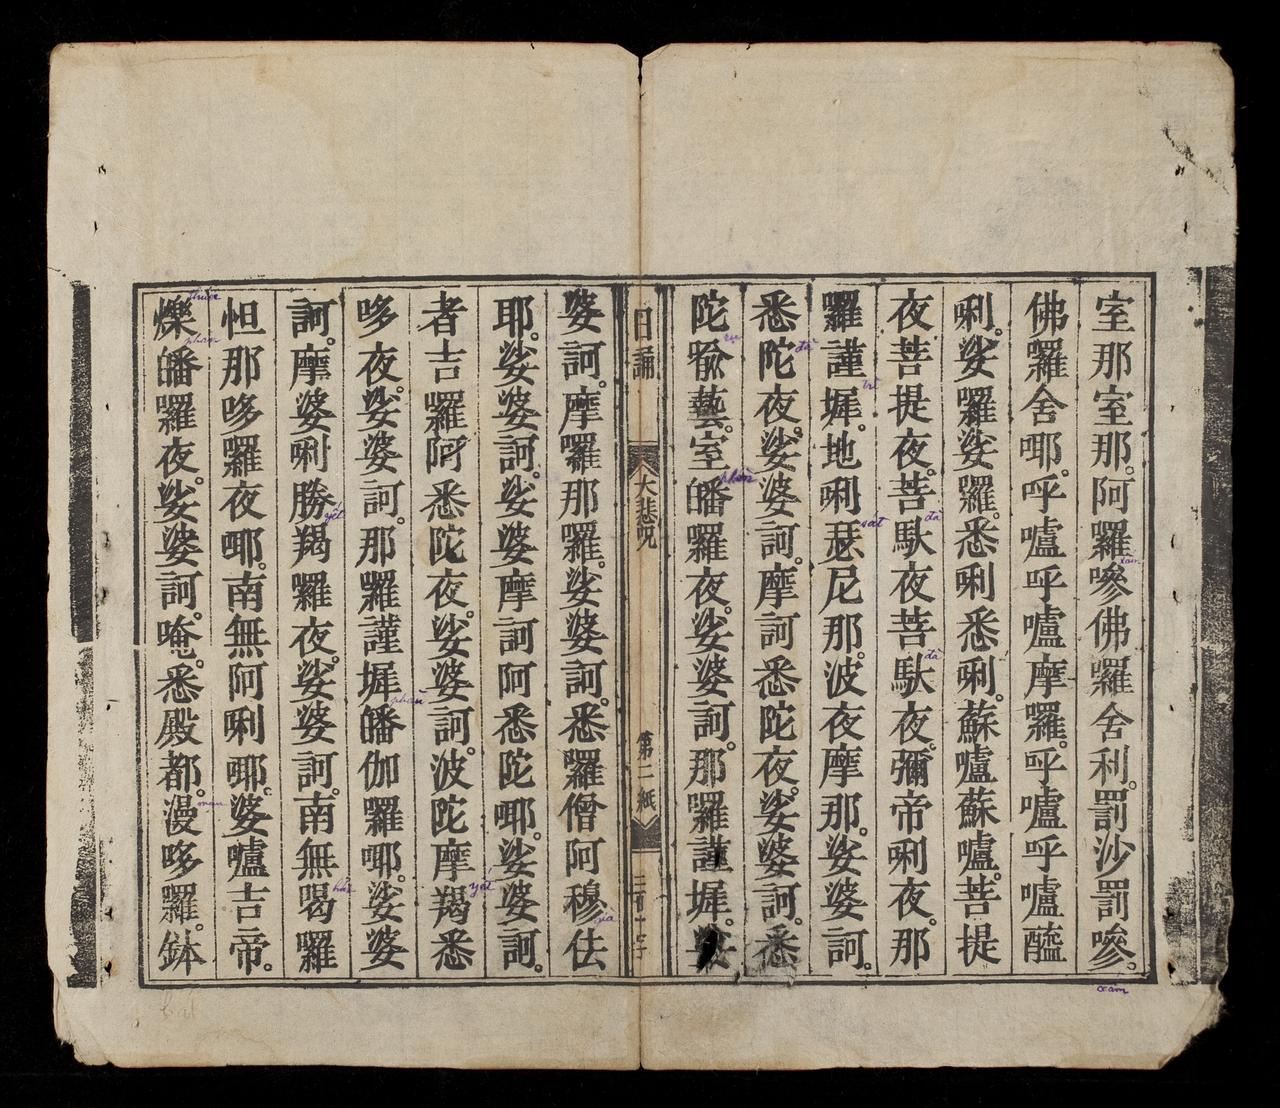 室那室那。阿羅嘇佛羅舍利。罰沙罰嘇。
佛羅舍耶。呼嚧呼嚧摩羅。呼嚧呼嚧醯
唎。娑羅娑羅。悉唎悉唎。蘇嚧蘇嚧。菩提
夜菩提夜。菩馱夜菩馱夜。彌帝唎夜。那
羅謹墀。地唎瑟尼那。波夜摩那。娑婆訶。
悉陀夜。娑婆訶。摩訶悉陀夜。娑婆訶。悉
陀喻藝。室皤羅夜。娑婆訶。那羅謹墀。娑
日誦
大悲呪
第二紙
婆訶。摩羅那羅。娑婆訶。悉羅僧阿穆佉
耶。娑婆訶。娑婆摩訶阿悉陀㖿。娑婆訶。
者吉羅阿悉陀夜。娑婆訶。波陀摩羯悉
哆夜。娑婆訶。那羅謹墀皤伽羅㖿。娑婆
訶。摩婆唎勝羯羅夜。娑婆訶。南無喝羅
怛那哆羅夜㖿。南無阿唎㖿。婆嚧吉帝。
爍皤羅夜。娑婆訶。唵。悉殿都。漫哆羅。鉢
xám
đà
đà
sắt
trì
đà
rụ
phàn
gia
yết
phàn
yết
hắt
thước
phàn
man
bát